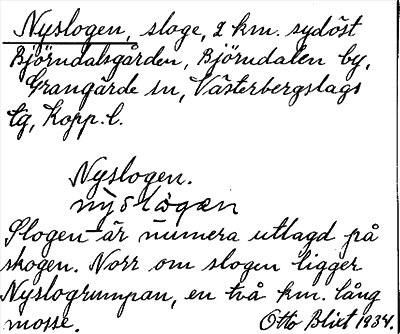 Nyslogen, sloge, 2 km. sydöst
Björndalsgården, Björndalen by,
Grangärde sn, Västerbergslags
tg, Kopp. l.
Nyslogen.
nyslogen
Slogen är numera utlagd på
skogen. Norr om slogen ligger
Nyslogrumpan, en två km. lång
mosse.
Otto Blixt 1934.